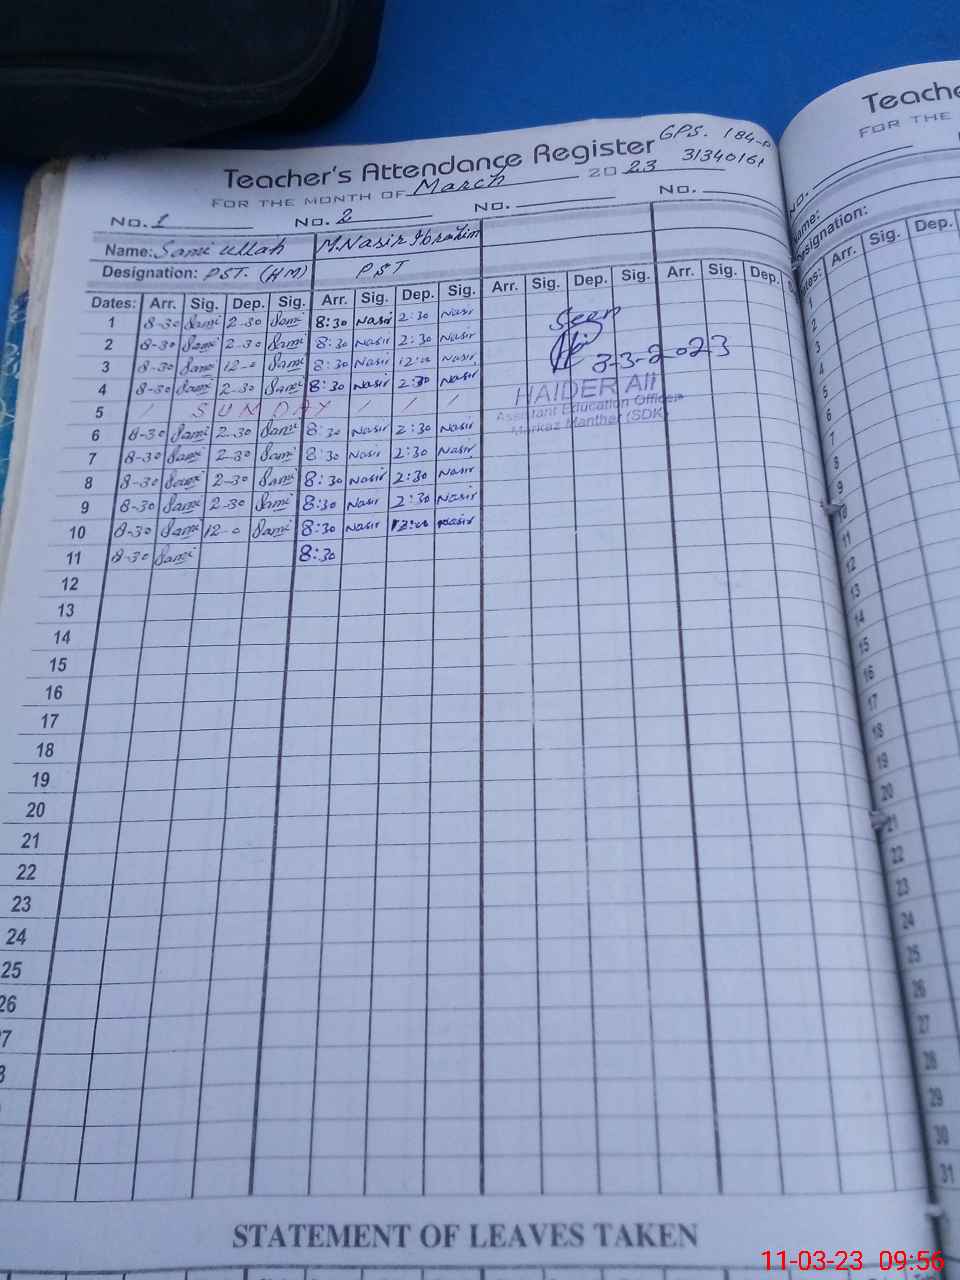 Teacher's Attendance Register GPS. 184-P
FOR THE MONTH OF March 2023 31340161
No. 1 No. 2 No. No.
Name: Sami Ullah M.Nasir Ibrahim
Designation: PST. (HM) PST
Dates: Arr. Sig. Dep. Sig. Arr. Sig. Dep. Sig. Arr. Sig. Dep. Sig. Arr. Sig. Dep.
1 8-30 Sami 2-30 Sami 8:30 Nasir 2:30 Nasir
2 8-30 Sami 2-30 Sami 8:30 Nasir 2:30 Nasir
3 8-30 Sami 12-0 Sami 8:30 Nasir 12:00 Nasir
4 8-30 Sami 2-30 Sami 8:30 Nasir 2:30 Nasir
5 / SUNDAY / / /
6 8-30 Sami 2-30 Sami 8:30 Nasir 2:30 Nasir
7 8-30 Sami 2-30 Sami 8:30 Nasir 2:30 Nasir
8 8-30 Sami 2-30 Sami 8:30 Nasir 2:30 Nasir
9 8-30 Sami 2-30 Sami 8:30 Nasir 2:30 Nasir
10 8-30 Sami 12-0 Sami 8:30 Nasir 12:00 Nasir
11 8-30 Sami 8:30
12
13
14
15
16
17
18
19
20
21
22
23
24
25
26
Seen
3-3-2023
HAIDER Ali
Assistant Education Officer
Markaz Manthar (SDK)
STATEMENT OF LEAVES TAKEN
Teache
FOR THE
No.
ame:
esignation:
Arr. Sig. Dep.
2
3
4
5
6
7
8
9
10
11
12
13
14
15
16
17
18
19
20
21
22
23
24
25
26
27
28
29
30
31
11-03-23 09:56